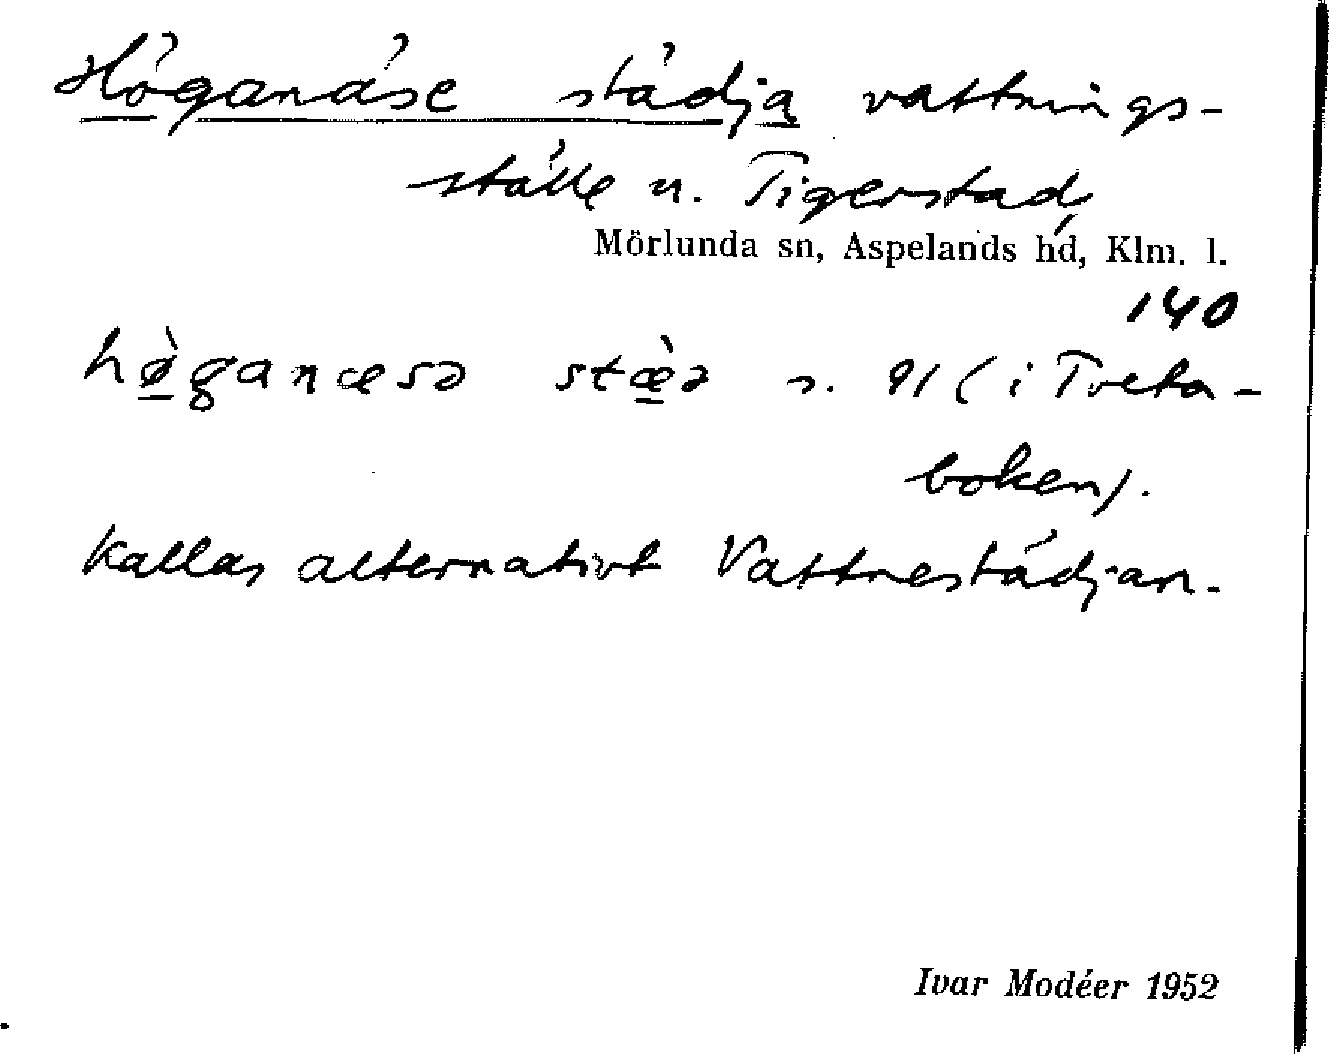 Höganäse städja vattnings-
ställe u. Tigerstad
Mörlunda sn, Aspelands hd, Klm. l.
140
hø̀ganæsə stæ̀ə s. 91 (i Tveta-
boken).
Kallas alternativt Vattnestädjan.
Ivar Modéer 1952